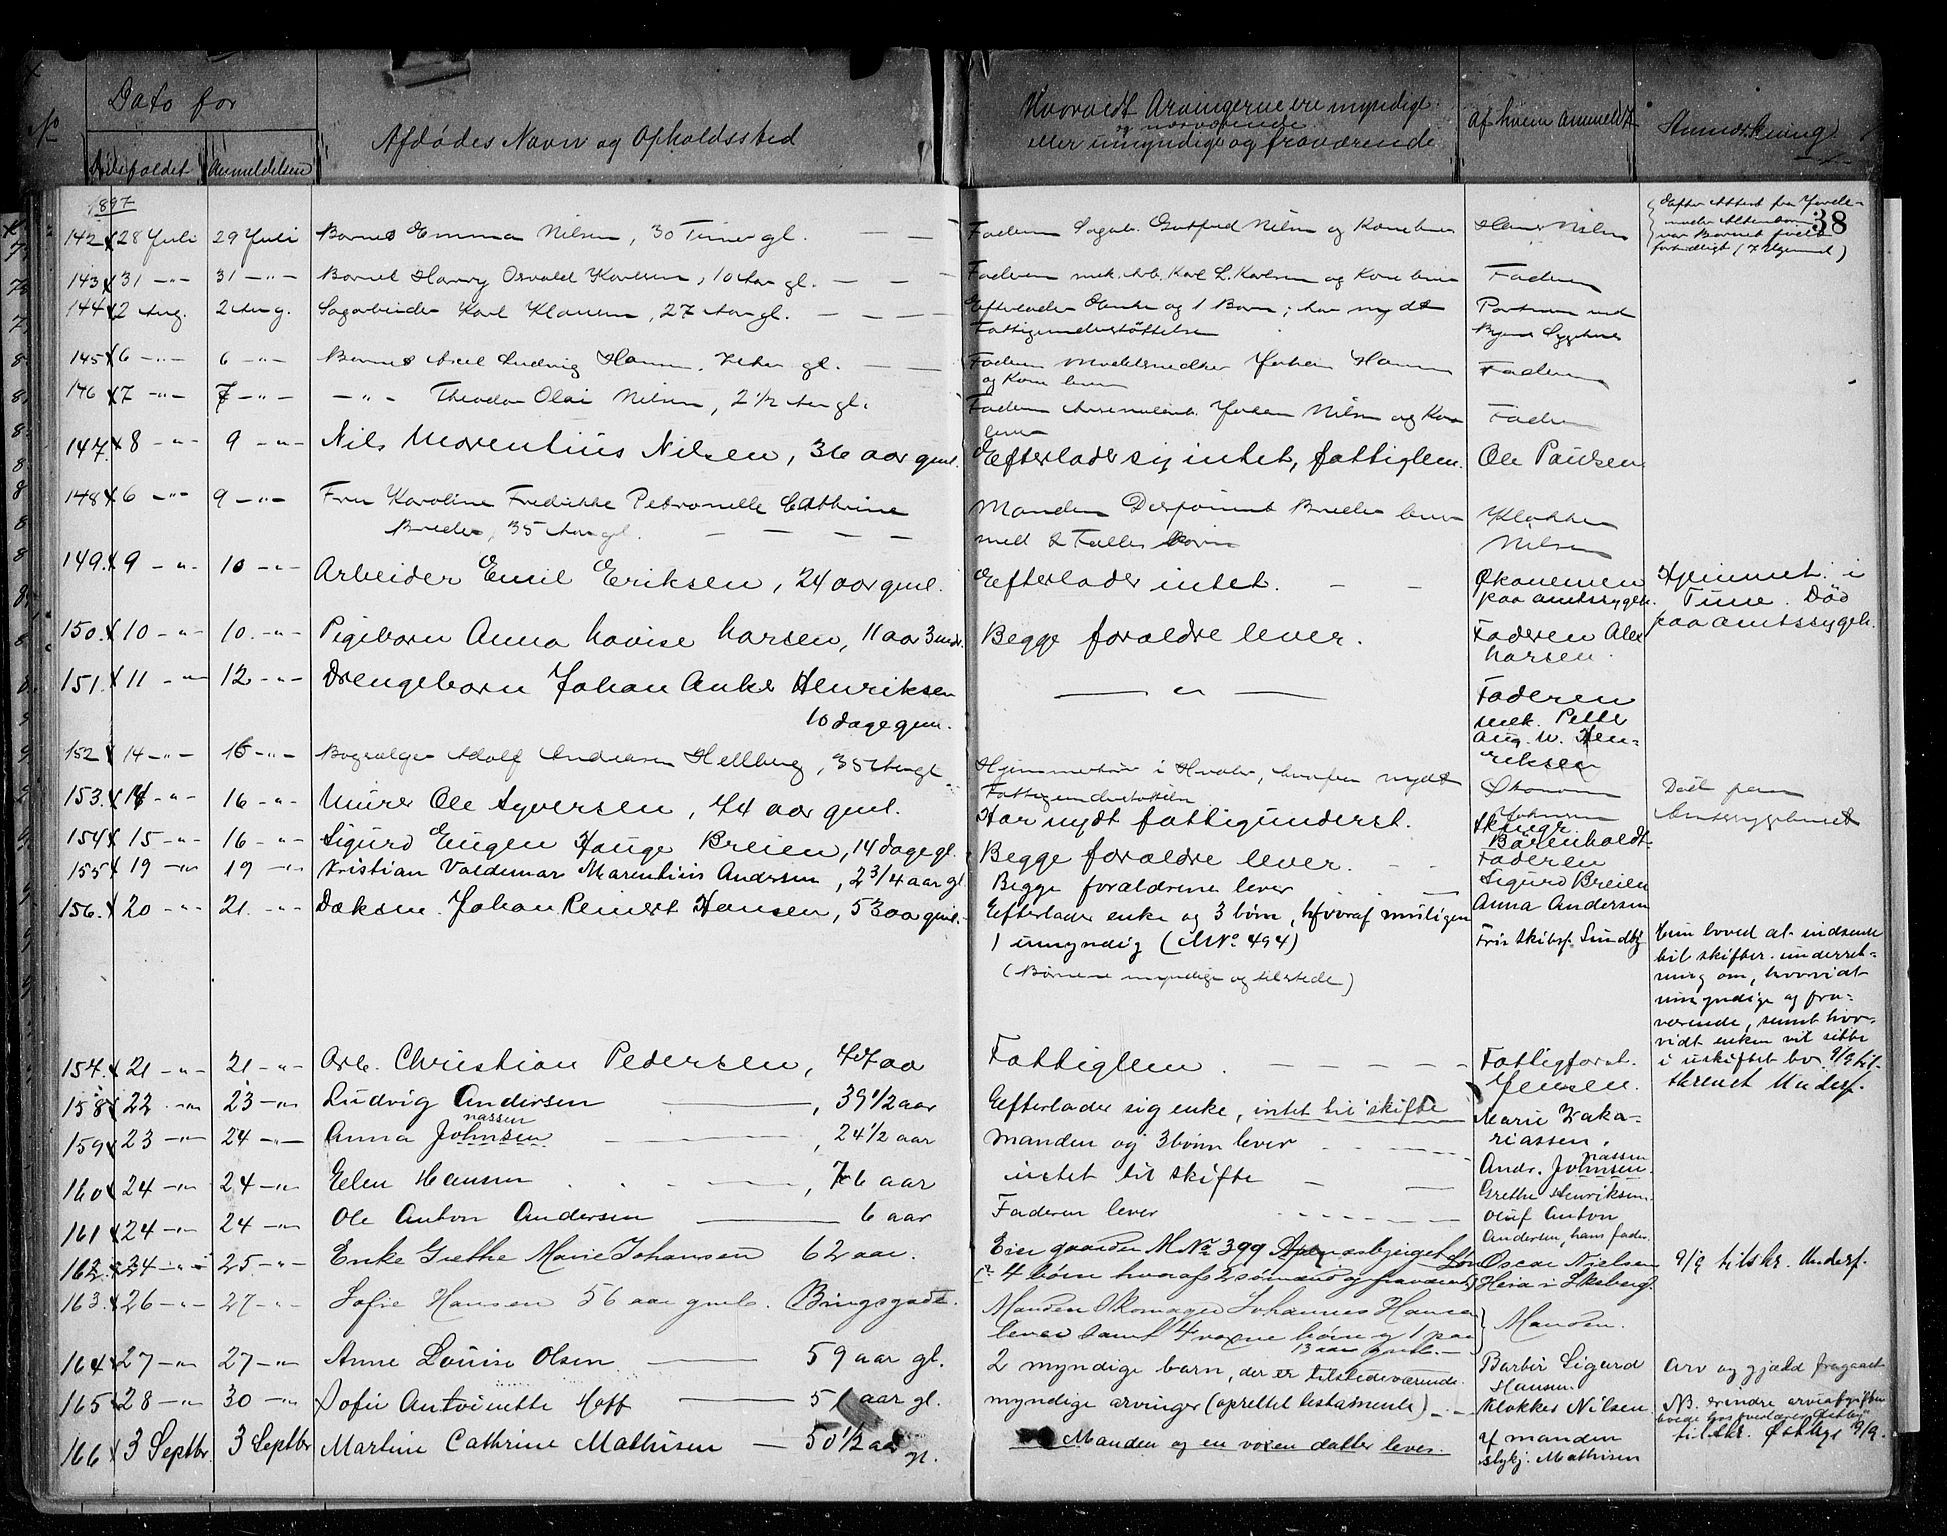 No
Dato for
Dødsfaldet Anmeldelsen
Afdødes Navn og Opholdssted
Hvorvidt Arvingerne ere myndige
og nærværende
eller umyndige og fraværende
af hvem anmeldt
Anmærkning
38
1897
142 28 Juli 29 Juli Barnet Emma Nilsen, 30 Timer gl. Faderen Sagarb. Nilsen og Kone lever Hans Nilsen
Efter Attest fra Jorde-
moder
var Barnet født
143 31 -"- 31 -"- Barnet Harry Osvald Karlsen, 10 Aar gl. Faderen mek. Arb. Karl L. Karlsen og Kone lever Faderen
144 2 Aug. 2 Aug. Sagarbeider Karl Klausen, 27 Aar gl. Efterlader Enke og 1 Barn; har nydt
Fattigunderstøttelse
Portneren ved
Byens Sygehus
145 6 -"- 6 -"- Barnet Axel Ludvig Hansen, gl. Faderen Modelsnedker Johan Hansen
og Kone lever
Faderen
146 7 -"- 7 -"- -"- Theodor Olai Nilsen, 2 1/2 Aar gl. Faderen Johan Nilsen og Kone
lever
Faderen
147. 8 -"- 9 -"- Nils Morentius Nilsen, 36 aar gml. Efterlader sig intet, fattiglem. Ole Paulsen
148 6 -"- 9 -"- Fru Karoline Fredrikke Petronelle Cathrine
Breder, 35 Aar gl.
Manden Breder lever
med 2 Fælles Børn
Klokker
Nilsen
149. 9 -"- 10 -"- Arbeider Emil Eriksen, 24 aar gml. Efterlader intet. Økonomen
paa amtssygeh.
Hjemmet i
Tune. Død
paa amtssygeh.
150. 10 -"- 10. -"- Pigebarn Anna Lovise Larsen, 11 aar 3 mdr. Begge forældre lever. Faderen Alex
Larsen.
151. 11 -"- 12 -"- Drengebarn Johan Anker Henriksen
10 dage gml.
-"-
Faderen
mek. Petter
Aug. W. Hen-
riksen
152 14 -"- 16 -"- Bogsælger Adolf Andreasen Hellberg, 35 Aar gl. Hjemmehør. i Hvaler, hvorfra nydt
Fattigunderstøttelse
Økonom
Johnsen
Død paa
Amtssygehuset
153. 14 -"- 16 -"- Murer Ole Syversen, 74 aar gml. Har nydt fattigunderst. Skrædr.
Barenholdt
154 15 -"- 16 -"- Sigurd Eugen Hauge Breien, 14 dage gl. Begge forældre lever. Faderen
Sigurd Breien
155 19 -"- 19 -"- Kristian Valdemar Marentius Andersen, 2 3/4 aar gl. Begge forældrene lever Anna Andersen
156. 20 -"- 21. -"- Dæksm. Johan Reinert Hansen, 53 aar gml. Efterlader enke og 3 børn, hvoraf muligen
1 umyndig (MNo 494)
(Børnene myndige og tilstede)
Fris Skibsf. Sundby
Hun loved at indsende
til skifter. underret-
ning om, hvorvidt
umyndige og fra-
værende, samt hvor-
vidt enken vil sitte
i uskiftet bo. 9/9 til-
skrevet Underf.
154. 21 -"- 21 -"- Arb. Christian Pedersen, 47 aar Fattiglem. Fattigforst.
Jensen.
158 22 -"- 23 -"- Ludvig Andersen, 39 1/2 aar Efterlader sig enke, intet til skifte Marie Zaka-
riassen.
159 23 -"- 24 -"- Anna Johnsen, 24 1/2 aar
nassen
Manden og 3 børn lever Andr. Johnsen.
nassen
160 24 -"- 24 -"- Elen Hansen, 76 aar intet til skifte Grethe Henriksen.
161 24 -"- 24 -"- Ole Anton Andersen 6 aar Faderen lever Oluf Anton
Andersen, hans fader
162. 24 -"- 25. -"- Enke Grethe Marie Johansen 62 aar. Eier gaarden MNo 399
4 børn hvoraf 2 sønner og fraværende
Søn Oscar Nielsen
Heia i Skeberg.
9/9 tilskr. Underf.
163. 26 -"- 27 -"- Sofie Hansen 56 aar gml. Bingsgade. Manden Skomager Johannes Hansen
lever samt 4 voxne børn og 1 paa
13 aar gml.
Manden.
164 27 -"- 27 -"- Anne Louise Olsen 59 aar gl. 2 myndige barn, der er tilstedeværende. Barber Sigurd
Hansen.
Arv og gjæld fragaaet
165 28 -"- 30 -"- Sofie Antoinette Hoff 51 aar gl. myndige arvinger (oprettet testamente) Klokker Nilsen NB. erindre arveafgiften
tilskr. 9/9.
166 3 Septbr. 3 Septbr Martine Cathrine Mathisen 50 1/2 aar
gl.
Manden og en voxen datter lever. af manden
stykj. Mathisen